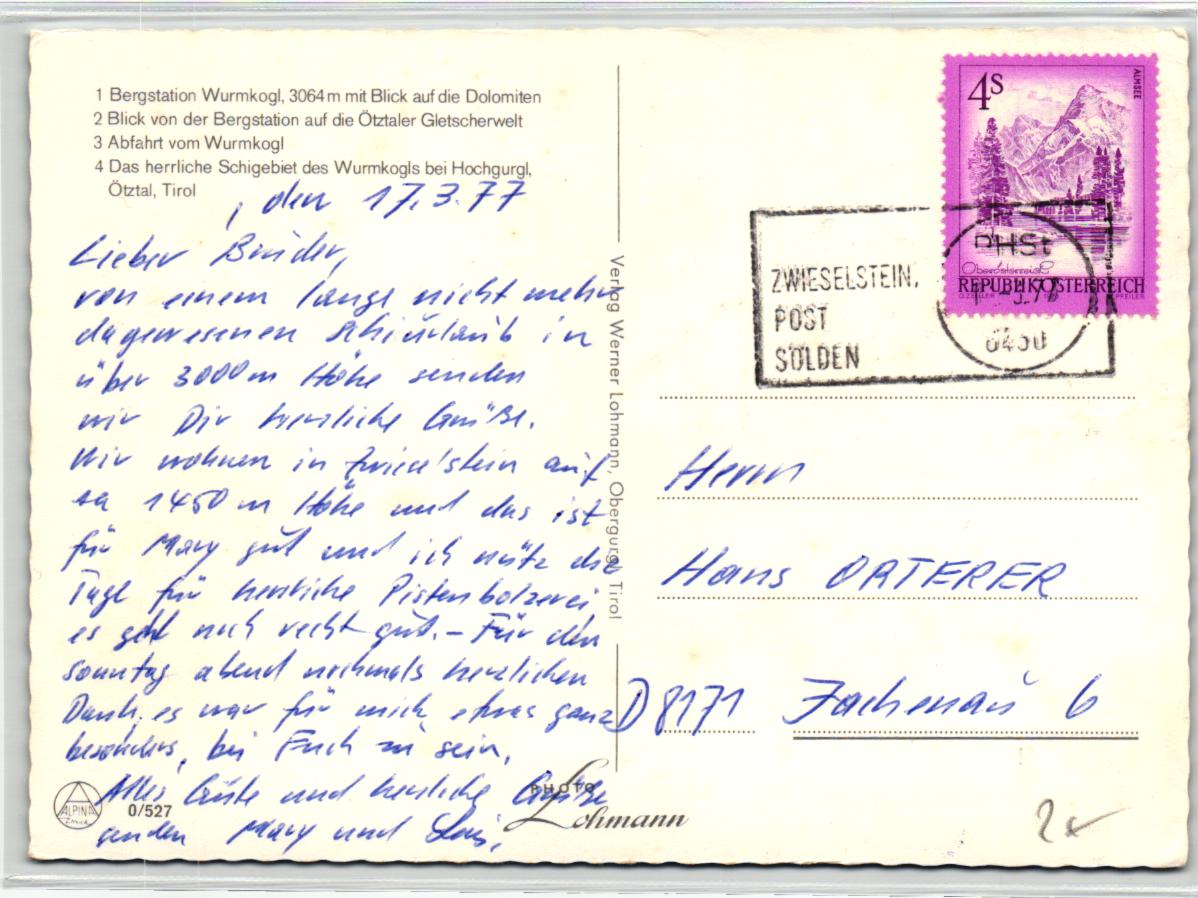 1 Bergstation Wurmkogl, 3064 m mit Blick auf die Dolomiten
2 Blick von der Bergstation auf die Ötztaler Gletscherwelt
3 Abfahrt vom Wurmkogl
4 Das herrliche Schigebiet des Wurmkogls bei Hochgurgl,
Ötztal, Tirol
, den 17.3.77
Lieber Bruder,
von einem lange nicht mehr
dagewesenen Schiurlaub in
über 3000 m Höhe senden
wir Dir herzliche Grüße.
Wir wohnen in Zwieselstein auf
ca 1450 m Höhe und das ist
für Mary gut und ich nütz die
Tage für herrliche Pistenbolzerei,
es geht noch recht gut. – Für den
Sonntag abend nochmals herzlichen
Dank, es war für mich etwas ganz
besonders, bei Euch zu sein.
Alles Gute und herzliche Grüße
senden Mary und
ALPINA
0/527
PHOTO
Lohmann
Verlag Werner Lohmann, Obergurgl, Tirol
4 S
ALMSEE
Oberösterreich
REPUBLIK ÖSTERREICH
PHSt
ZWIESELSTEIN,
POST
SÖLDEN
6450
Herrn
Hans ORTERER
D 8171 Jachenau 6
2x